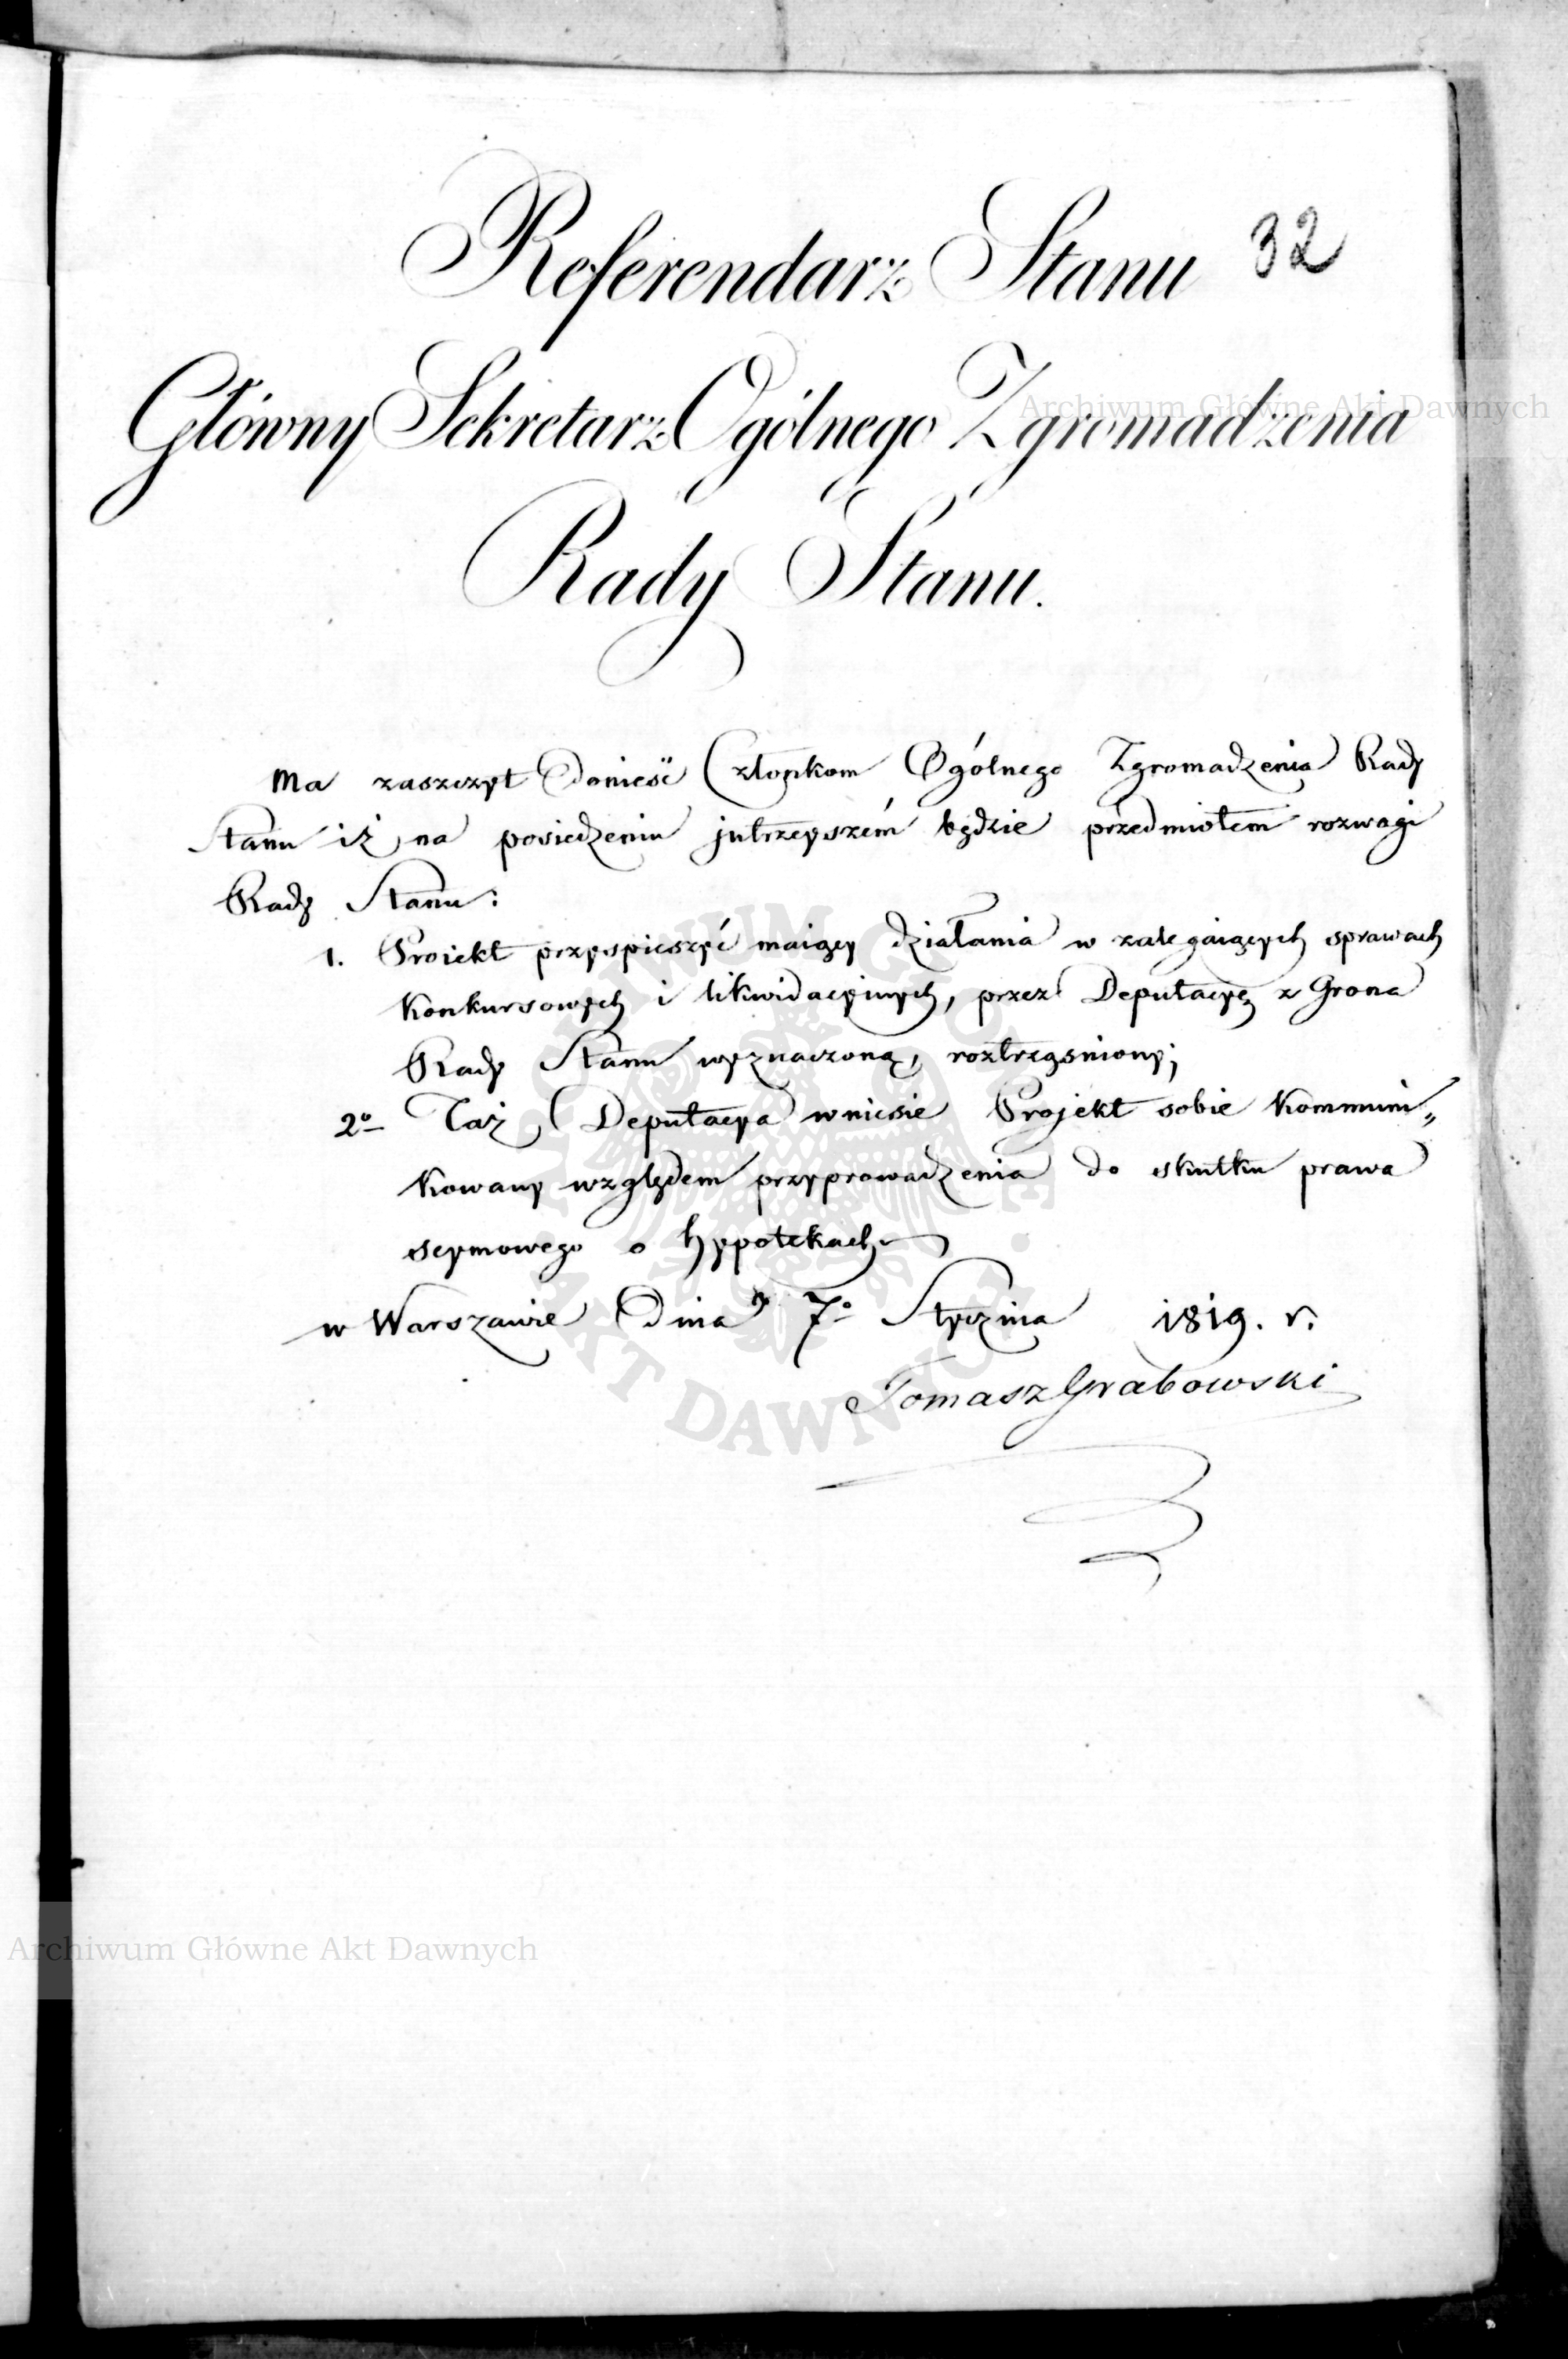 Referendarz Stanu 32
Główny Sekretarz Ogólnego Zgromadzenia
Rady Stanu.
Ma zaszczyt donieść Członkom Ogólnego Zgromadzenia Rady
Stanu iż na posiedzeniu jutrzeyszém będzie przedmiotem rozwagi
Rady Stanu:
1. Proiekt przyspieszyć maiący działania w zalegaiących sprawach
konkursowych i likwidacyinych, przez Deputacyę z Grona
Rady Stanu wyznaczoną, roztrząśniony;
2º Taż Deputacya wniesie Projekt sobie kommuni„
kowany względem przyprowadzenia do skutku prawa
seymowego o hypotekach
w Warszawie Dnia 7º Stycznia 1819. r.
Tomasz Grabowski
Archiwum Główne Akt Dawnych
ARCHIWUM GŁÓWNE AKT DAWNYCH
Archiwum Główne Akt Dawnych